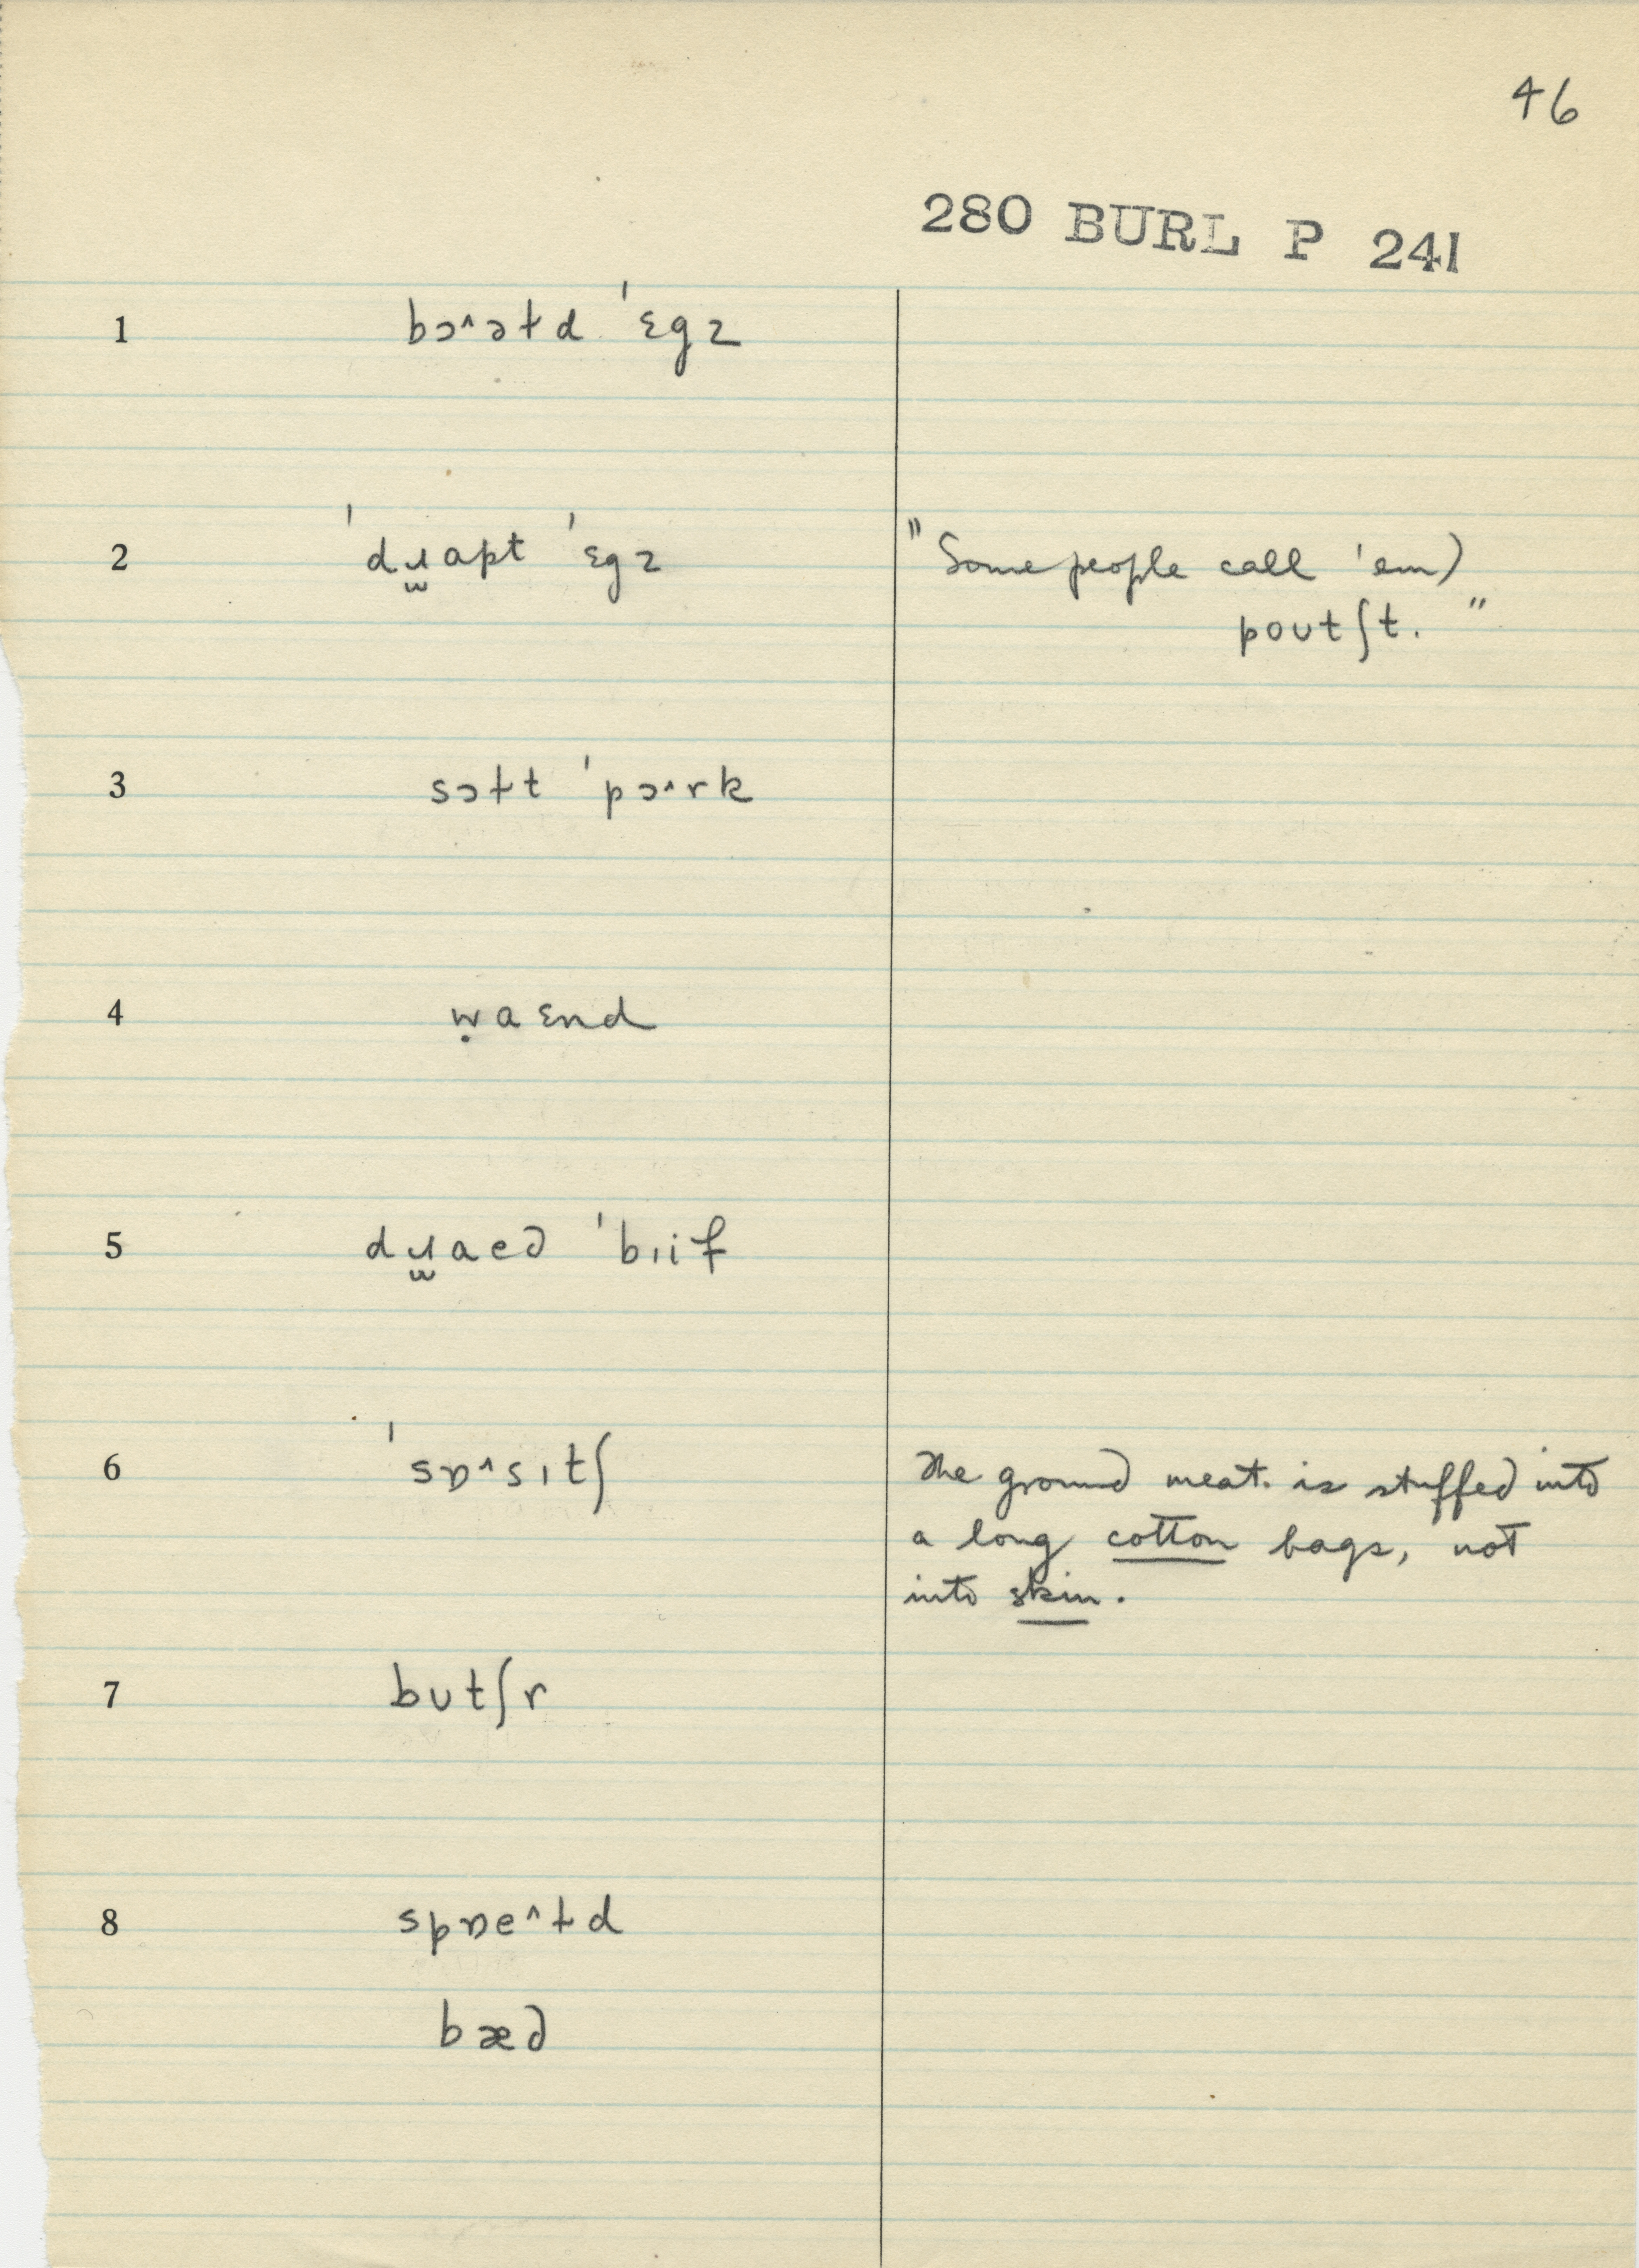 46
280 BURL P 241
1 bɔ^əɫd 'ɛgz
2 'dɹ̫apt 'ɛgz "Some people call 'em)
poutʃt."
3 sɔɫt 'pɔ^rk
4 ẉaɛnd
5 dɹ̫aed 'bɪif
6 'sɒ^sɪtʃ The ground meat. is stuffed into
a long cotton bags, not
into skin.
7 bʊtʃr
8 spɒe^ɫd
bæd